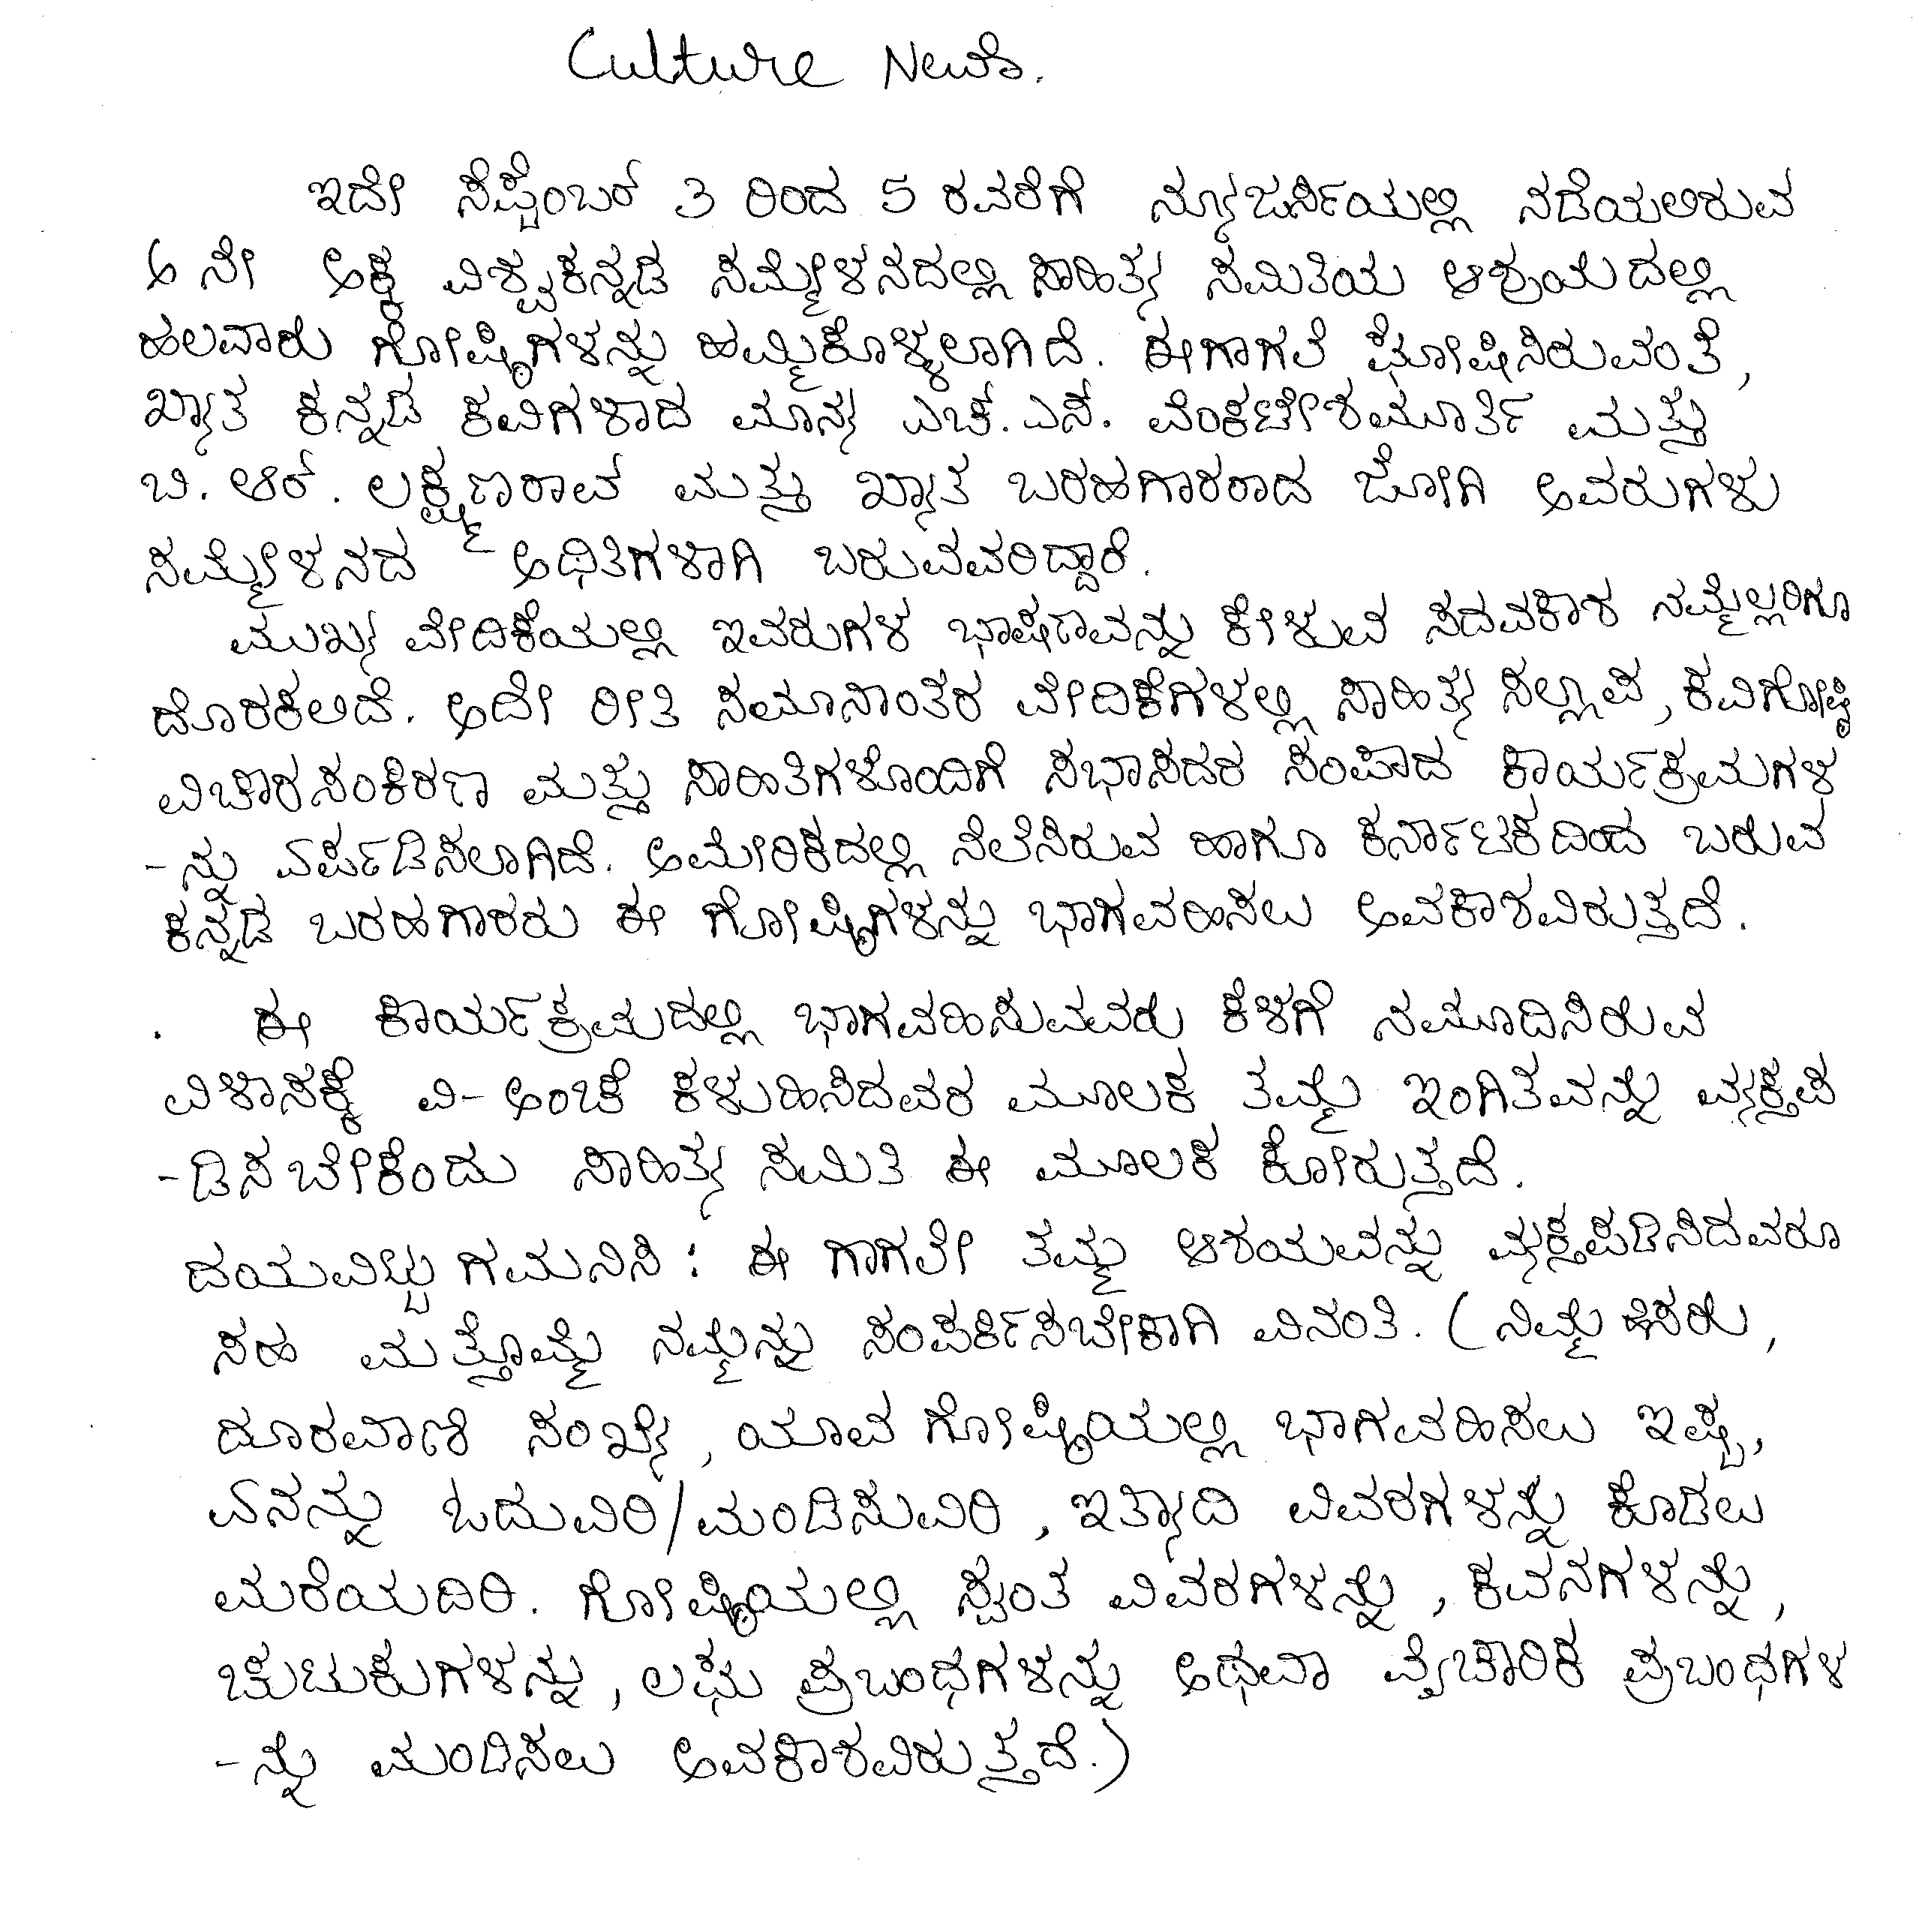 Culture News.
ಇದೇ ಸೆಪ್ಟೆಂಬರ್ 3 ರಿಂದ 5 ರವರೆಗೆ ನ್ಯೂಜರ್ಸಿಯಲ್ಲಿ ನಡೆಯಲಿರುವ
೬ ನೇ ಅಕ್ಕ ವಿಶ್ವಕನ್ನಡ ಸಮ್ಮೇಳನದಲ್ಲಿ ಸಾಹಿತ್ಯ ಸಮಿತಿಯ ಆಶ್ರಯದಲ್ಲಿ
ಹಲವಾರು ಗೋಷ್ಠಿಗಳನ್ನು ಹಮ್ಮಿಕೊಳ್ಳಲಾಗಿದೆ. ಈಗಾಗಲೆ ಘೋಷಿಸಿರುವಂತೆ,
ಖ್ಯಾತ ಕನ್ನಡ ಕವಿಗಳಾದ ಮಾನ್ಯ ಎಚ್. ಎಸ್. ವೆಂಕಟೇಶಮೂರ್ತಿ ಮತ್ತು
ಬಿ. ಆರ್. ಲಕ್ಷ್ಮಣರಾವ್ ಮತ್ತು ಖ್ಯಾತ ಬರಹಗಾರರಾದ ಜೋಗಿ ಅವರುಗಳು
ಸಮ್ಮೇಳನದ ಅಥಿತಿಗಳಾಗಿ ಬರುವವರಿದ್ದಾರೆ.
ಮುಖ್ಯ ವೇದಿಕೆಯಲ್ಲಿ ಇವರುಗಳ ಭಾಷಣವನ್ನು ಕೇಳುವ ಸದವಕಾಶ ನಮ್ಮೆಲ್ಲರಿಗೂ
ದೊರಕಲಿದೆ. ಅದೇ ರೀತಿ ಸಮಾನಾಂತರ ವೇದಿಕೆಗಳಲ್ಲಿ ಸಾಹಿತ್ಯ ಸಲ್ಲಾಪ, ಕವಿಗೋಷ್ಠಿ
ವಿಚಾರಸಂಕಿರಣ ಮತ್ತು ಸಾಹಿತಿಗಳೊಂದಿಗೆ ಸಭಾಸದರ ಸಂವಾದ ಕಾರ್ಯಕ್ರಮಗಳ
-ನ್ನು ಏರ್ಪಡಿಸಲಾಗಿದೆ. ಅಮೇರಿಕದಲ್ಲಿ ನೆಲೆಸಿರುವ ಹಾಗೂ ಕರ್ನಾಟಕದಿಂದ ಬರುವ
ಕನ್ನಡ ಬರಹಗಾರರು ಈ ಗೋಷ್ಠಿಗಳನ್ನು ಭಾಗವಹಿಸಲು ಅವಕಾಶವಿರುತ್ತದೆ.
. ಈ ಕಾರ್ಯಕ್ರಮದಲ್ಲಿ ಭಾಗವಹಿಸುವವರು ಕೆಳಗೆ ನಮೂದಿಸಿರುವ
ವಿಳಾಸಕ್ಕೆ ವಿ-ಅಂಚೆ ಕಳುಹಿಸಿದವರ ಮೂಲಕ ತಮ್ಮ ಇಂಗಿತವನ್ನು ವ್ಯಕ್ತಪ
-ಡಿಸಬೇಕೆಂದು ಸಾಹಿತ್ಯ ಸಮಿತಿ ಈ ಮೂಲಕ ಕೋರುತ್ತದೆ.
ದಯವಿಟ್ಟು ಗಮನಿಸಿ : ಈ ಗಾಗಲೇ ತಮ್ಮ ಆಶಯವನ್ನು ವ್ಯಕ್ತಪಡಿಸಿದವರೂ
ಸಹ ಮತ್ತೊಮ್ಮೆ ನಮ್ಮನ್ನು ಸಂಪರ್ಕಿಸಬೇಕಾಗಿ ವಿನಂತಿ. (ನಿಮ್ಮ ಹೆಸರು,
ದೂರವಾಣಿ ಸಂಖ್ಯೆ, ಯಾವ ಗೋಷ್ಠಿಯಲ್ಲಿ ಭಾಗವಹಿಸಲು ಇಷ್ಟ,
ಏನನ್ನು ಓದುವಿರಿ/ಮಂಡಿಸುವಿರಿ, ಇತ್ಯಾದಿ ವಿವರಗಳನ್ನು ಕೊಡಲು
ಮರೆಯದಿರಿ. ಗೋಷ್ಠಿಯಲ್ಲಿ ಸ್ವಂತ ವಿವರಗಳನ್ನು, ಕವನಗಳನ್ನು,
ಚುಟುಕುಗಳನ್ನು, ಲಘು ಪ್ರಬಂಧಗಳನ್ನು ಅಥವಾ ವೈಚಾರಿಕ ಪ್ರಬಂಧಗಳ
-ನ್ನು ಮಂಡಿಸಲು ಅವಕಾಶವಿರುತ್ತದೆ.)